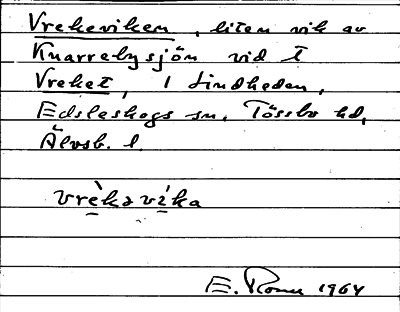 Vrekeviken, liten vik av
Knarrebysjön vid t
Vreket, 1 Lindheden,
Edsleskogs sn, Tössbo hd,
Älvsb. l.
vrèkavíka
E. 1964